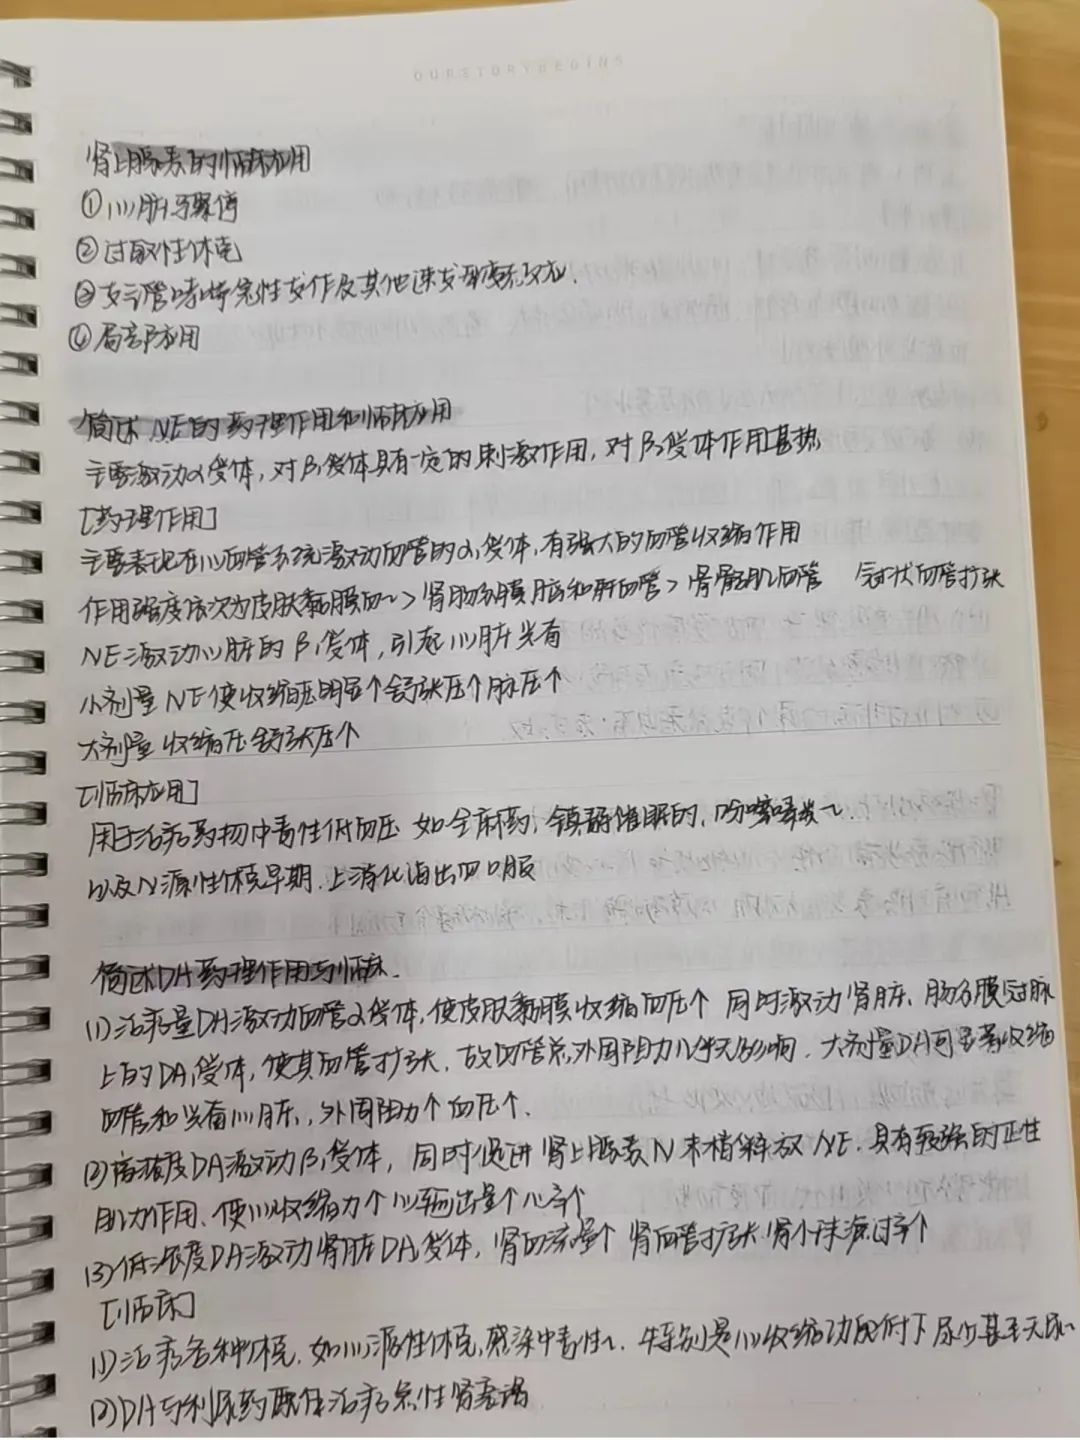 OURSTORYBEGINS
肾上腺素的临床应用
①心脏骤停
②过敏性休克
③支气管哮喘急性发作及其他速发型变态反应.
④局部应用
简述NE的药理作用和临床应用
主要激动α受体,对β₁受体具有一定的刺激作用,对β₂受体作用甚热
[药理作用]
主要表现在心血管系统激动血管的α₁受体,有强大的血管收缩作用
作用强度依次为皮肤黏膜血~>肾肠系膜脑和肝血管>骨骼肌血管 冠状血管扩张
NE激动心脏的β₁受体,引起心脏兴奋
小剂量NE使收缩压明显↑舒张压↑脉压↑
大剂量收缩压舒张压↑
[临床应用]
用于治疗药物中毒性低血压 如全麻药,镇静催眠的,吩噻嗪类~.
以及N源性休克早期.上消化道出血口服
简述DA药理作用与临床.
(1)治疗量DA激动血管α受体,使皮肤黏膜收缩血压↑ 同时激动肾脏、肠系膜冠脉
上的DA₁受体,使其血管扩张,故血管总外周阻力几乎无影响.大剂量DA可显著收缩
血管和兴奋心脏,外周阻力↑血压↑.
(2)高浓度DA激动β₁受体,同时促进肾上腺素N末梢释放NE.具有较强的正性
肌力作用、使心收缩力↑心输出量↑心率↑
(3)低浓度DA激动肾脏DA₁受体,肾血流量↑肾血管扩张肾小球滤过率↑
[临床]
(1)治疗各种休克.如心源性休克,感染中毒性~.特别是心收缩功能低下尿少甚至无尿~
(2)DA与利尿药联合治疗急性肾衰竭